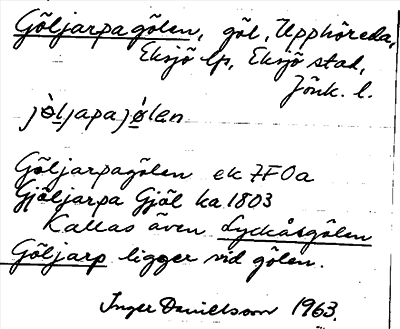 Göljarpagölen, göl, Upphöreda,
Eksjö lfs, Eksjö stad,
Jönk. l.
jö̀ljapajö́len
Göljarpagölen ek 7F0a
Gjöljarpa Gjöl ka 1803
Kallas även Lyckåsgölen
Göljarp ligger vid gölen.
Inger Danielsson 1963.